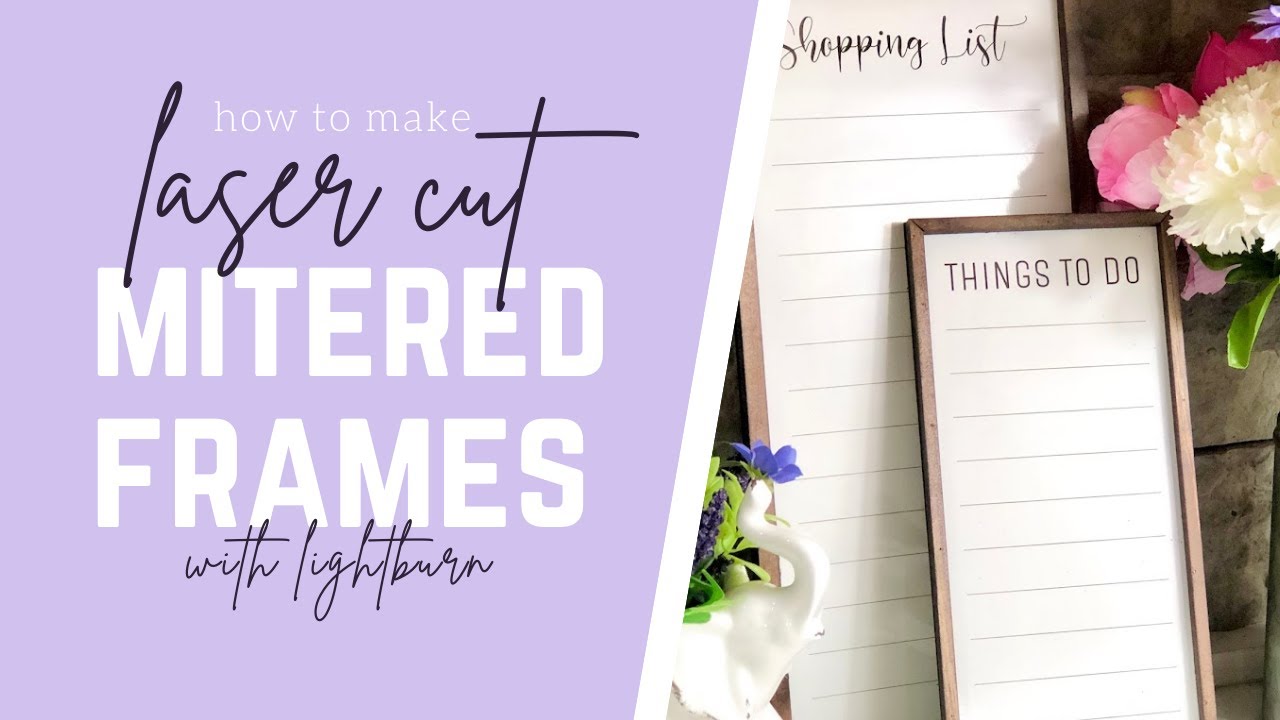 how to make
laser cut
MITERED
FRAMES
with lightburn
Shopping List
THINGS TO DO